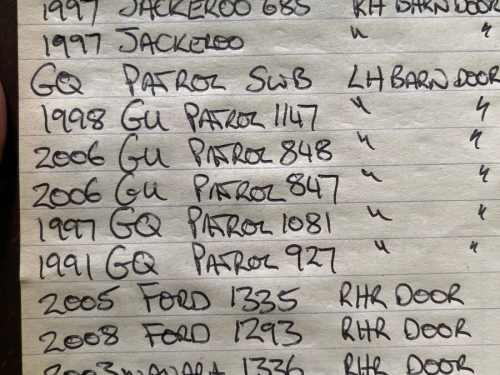 1997 JACKEROO 685 RH BARN DOOR
1997 JACKEROO " "
GQ PATROL SWB LH BARN DOOR
1998 GU PATROL 1147 " "
2006 GU PATROL 848 " "
2006 GU PATROL 847 " "
1997 GQ PATROL 1081 " "
1991 GQ PATROL 927 " "
2005 FORD 1335 RHR DOOR
2008 FORD 1293 RHR DOOR
2003 NAVARA 1336 RHR DOOR